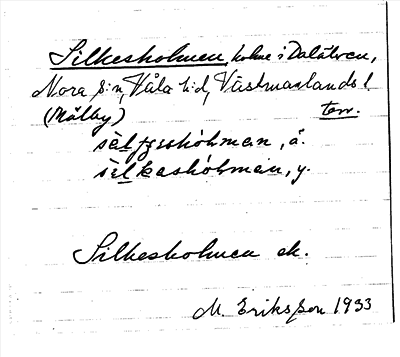 Silkesholmen, holme i Dalälven,
Nora s:n, Våla h:d, Västmanlands l.
(Målby) terr.
sèlfjsshòhmen, ä.
sìlkashòhmen, y.
Silkesholmen ek.
M. Eriksson 1933